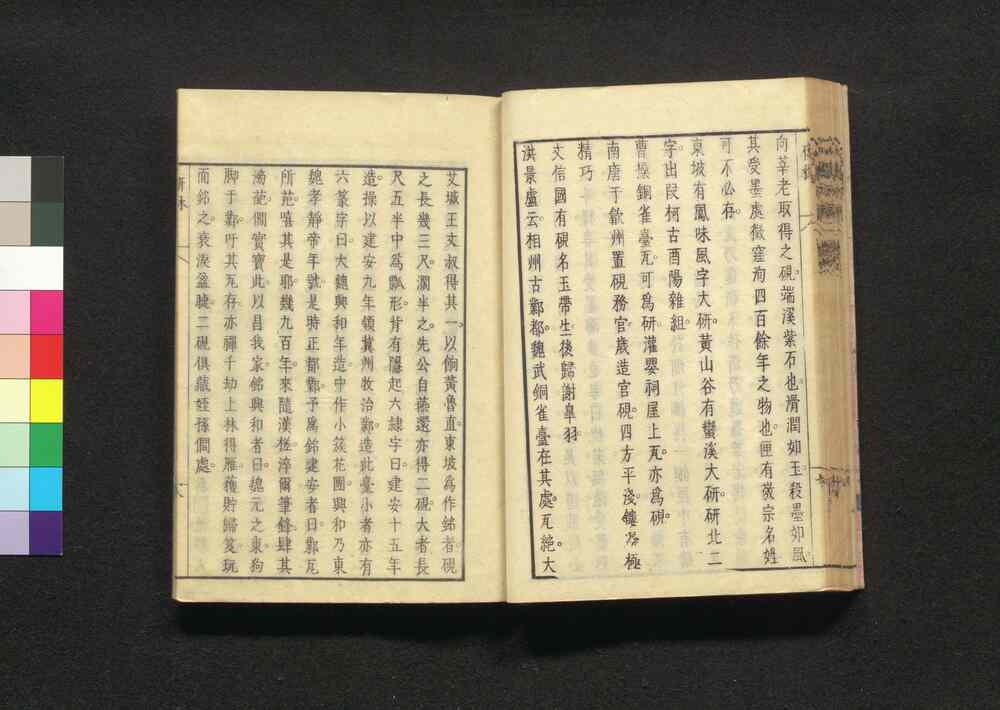 向莘老取得之硯端溪紫石也滑潤如玉殺墨如風
其受墨處微窪洵四百餘年之物也匣有徽宗名姓
可不必存
東坡有鳳味風字大研黃山谷有蠻溪大研研北二
字出段柯古酉陽雜組
曹操銅雀臺瓦可爲研灌嬰祠屋上瓦亦爲硯
南唐于歙州置硯務官歲造官硯四方平淺鏤極
精巧
文信國有硯名玉帶生後歸謝臯羽
洪景盧云相州古鄴都魏武銅雀臺在其處瓦絶大
艾城王文叔得其一以餉黃魯直東坡爲作銘者硯
之長幾三尺濶半之先公自燕還亦得二硯大者長
尺五半中爲瓢形背有隱起六隷字曰建安十五年
造操以建安九年領冀州牧治鄴造此臺小者亦有
六篆字曰大魏興和年造中作小簇花團興和乃東
魏孝靜帝年號是時正都鄴予爲銘建安者曰鄴瓦
所范嘻其是耶幾九百年來隨漢槎淬爾筆鋒肆其
滂葩僴實寶此以昌我家銘興和者曰魏元之東狗
脚于鄴吁其瓦存亦禪千劫上林得雁獲貯歸笈玩
而銘之衰淚盈睫二硯俱藏姪孫僴處